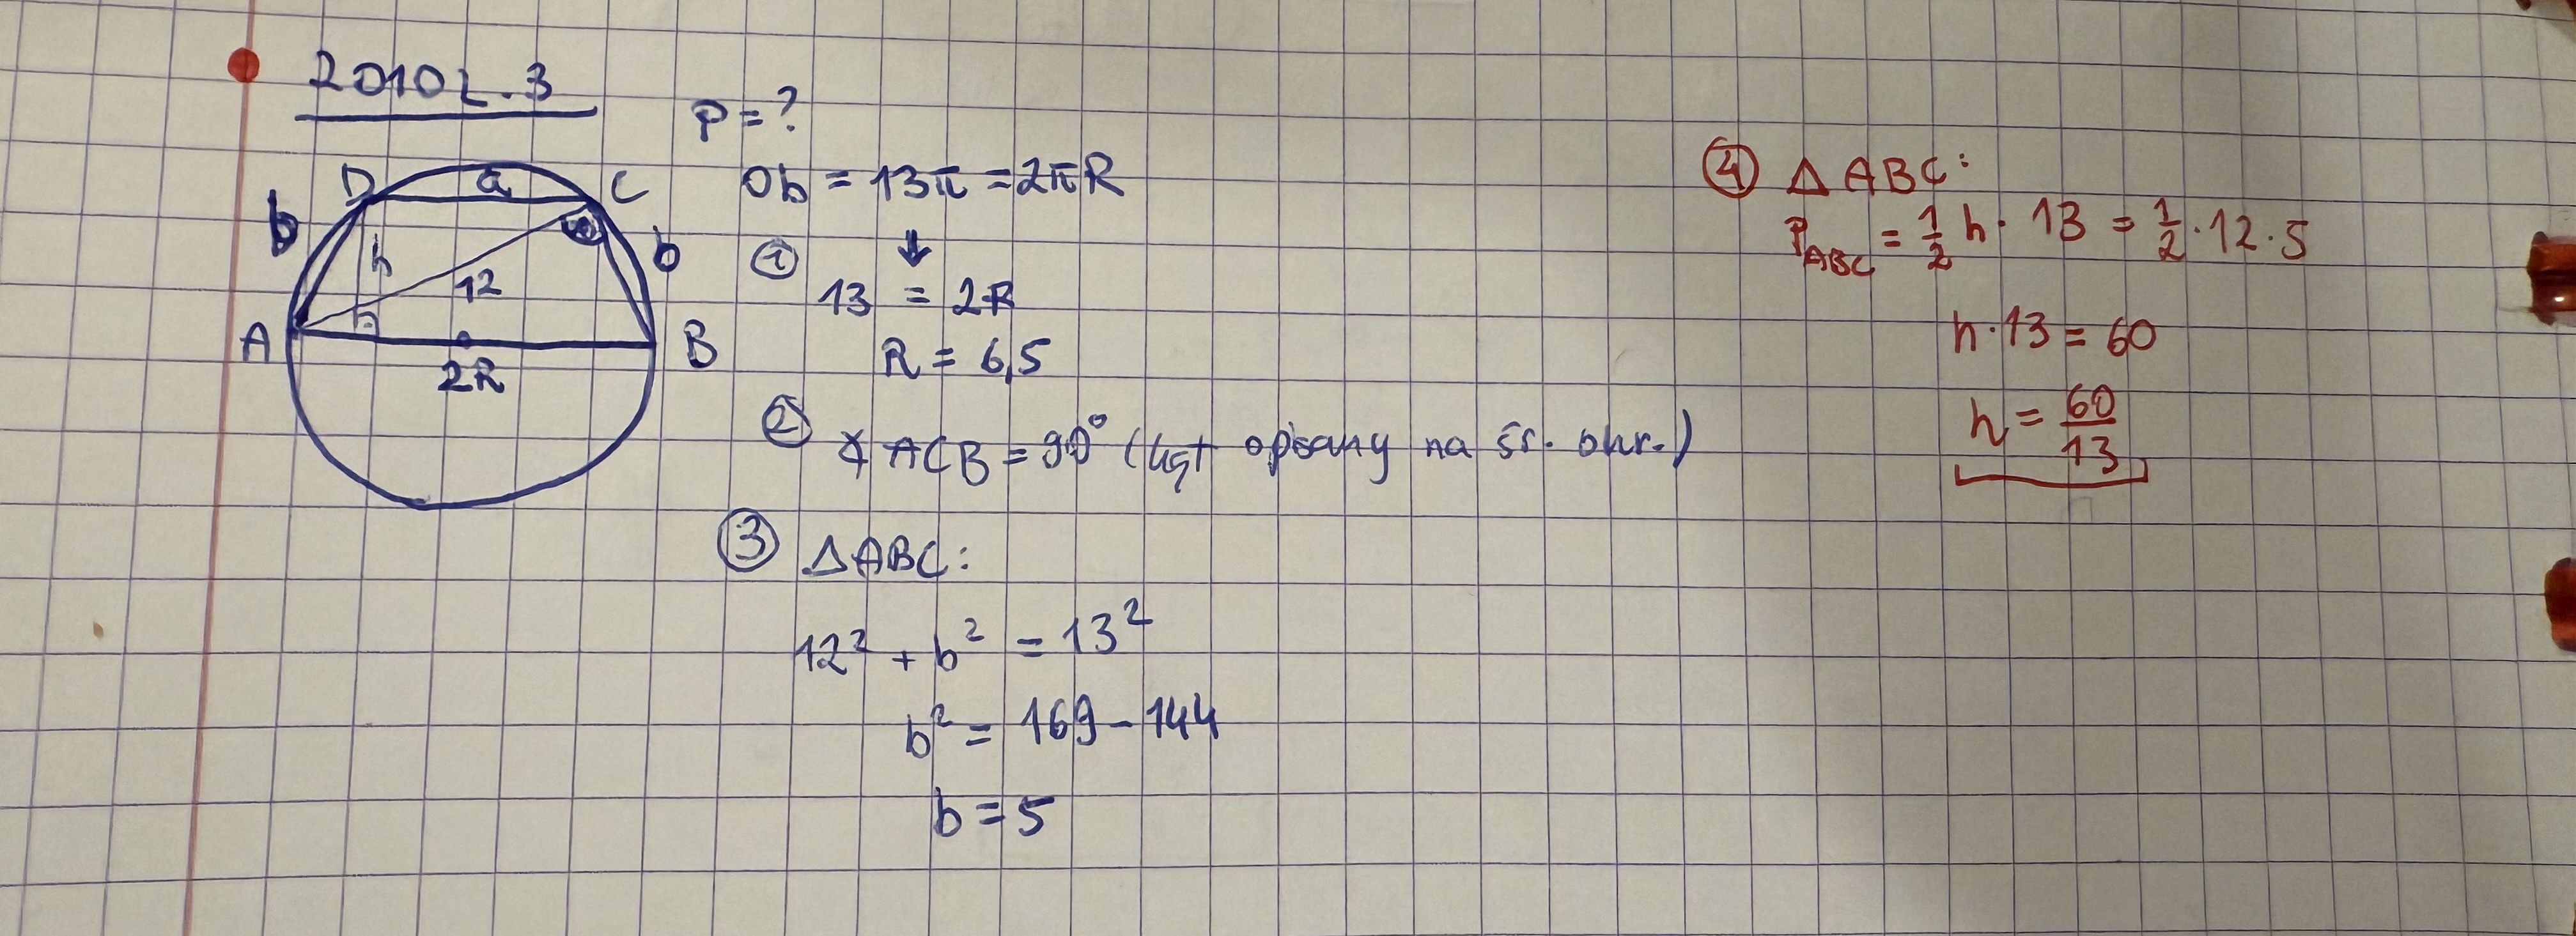 2010 Z.3
P = ?
Ob = 13π = 2πR
D a C
b h 12 b
A 2R B
① ↓
13 = 2R
R = 6,5
② ∢ ACB = 90° (kąt opisany na śr. okr.)
③ △ABC:
12² + b² = 13²
b² = 169 - 144
b = 5
④ △ ABC:
P_ABC = 1/2 h · 13 = 1/2 · 12 · 5
h · 13 = 60
h = 60/13